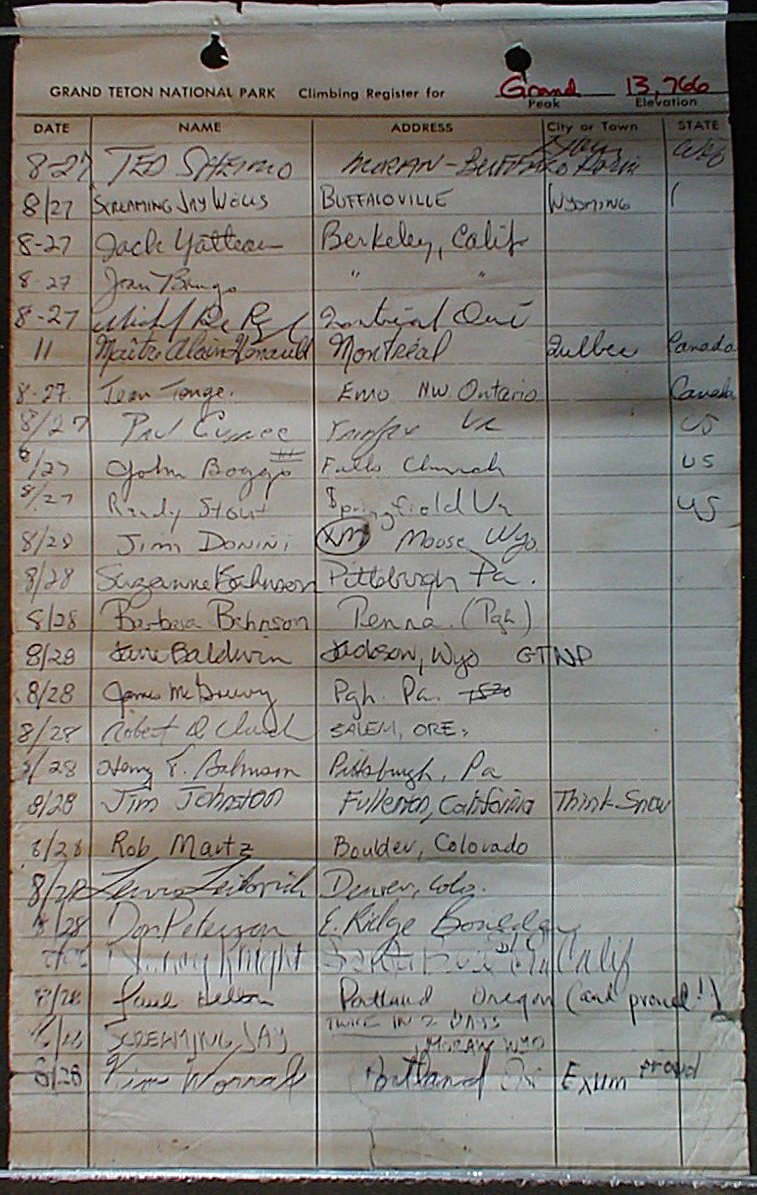 GRAND TETON NATIONAL PARK Climbing Register for Grand 13,766
Peak Elevation
DATE NAME ADDRESS City or Town STATE
8-27 TED MORAN - BUFFALO Wyo
8/27 SCREAMING JAY WOLLS BUFFALOVILLE WYOMING (
8-27 Jack Yatteau Berkeley, Calif
8-27 Jean " "
8-27 Montréal Qué
11 Maître Alain Henault Montréal Québec Canada
8-27 Jean Tonge. EMO NW Ontario Canada
8/27 Paul Va US
8/27 John Boggs III Falls Church US
8/27 Randy Stout Springfield Va US
8/28 JIM DONINI XM Moose, Wyo.
8/28 Suzanne Behnson Pittsburgh Pa.
8/28 Barbara Behnson Penna. (Pgh)
8/28 Jane Baldwin Jackson, Wyo GTNP
8/28 James Pgh. Pa.
8/28 Robert D Church SALEM, ORE.
8/28 Henry Behnson Pittsburgh, Pa
8/28 Jim Johnston Fullerton, California Think Snow
8/28 Rob Martz Boulder, Colorado
8/28 Denver, Colo.
8/28 Don Peterson E. Ridge Boulder
Knight Calif
8/28 Paul Portland Oregon (and proud!!)
SCREAMING JAY TWICE IN 2 DAYS
MORAN WYO
8/28 Kim Worrall Portland Or Exum proud